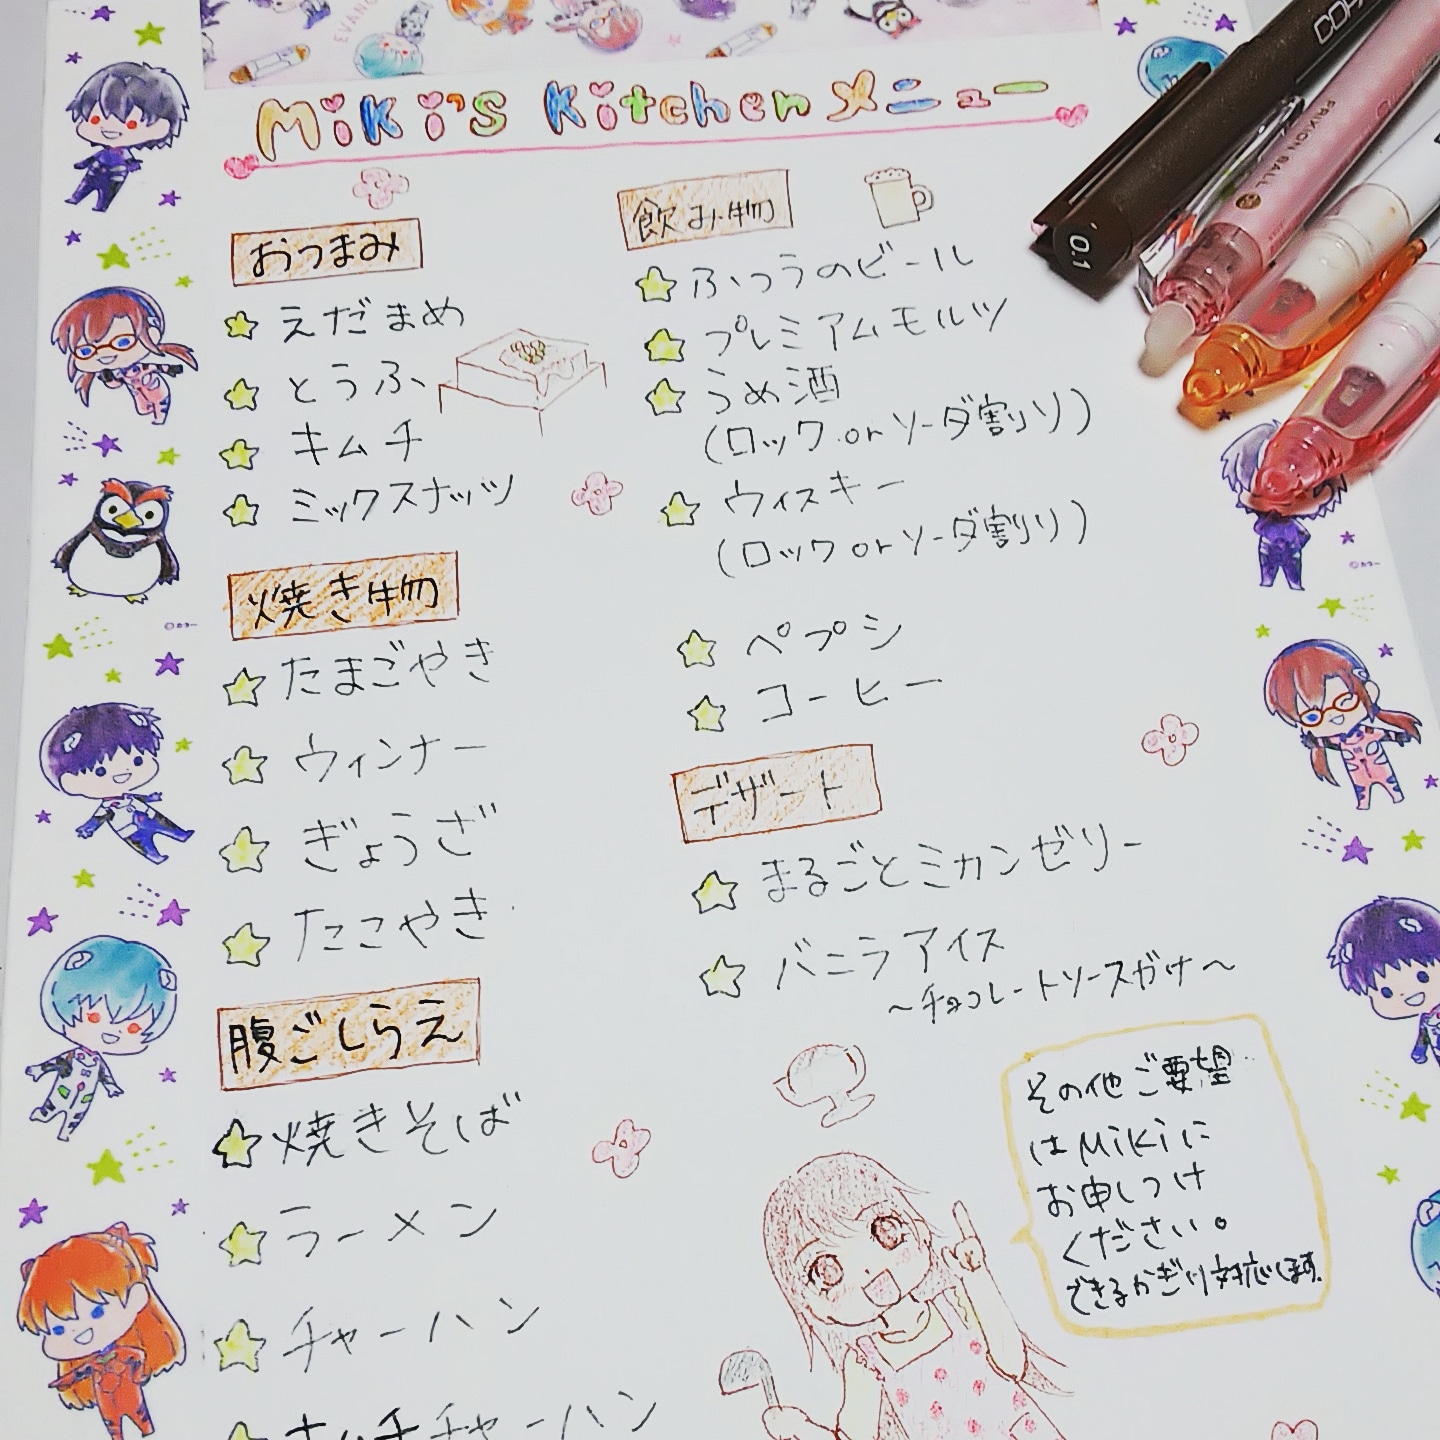 EVANG
Miki's Kitchenメニュー
おつまみ
えだまめ
とうふ
キムチ
ミックスナッツ
焼き物
たまごやき
ウィンナー
ぎょうざ
たこやき
腹ごしらえ
焼きそば
ラーメン
チャーハン
キムチチャーハン
飲み物
ふつうのビール
プレミアムモルツ
うめ酒
(ロックorソーダ割り)
ウィスキー
(ロックorソーダ割り)
ペプシ
コーヒー
デザート
まるごとミカンゼリー
バニラアイス
～チョコレートソースがけ～
その他ご要望
はMikiに
お申しつけ
ください。
できるかぎり対応します.
©カラー
©カラー
0.1
FRIXION BALL